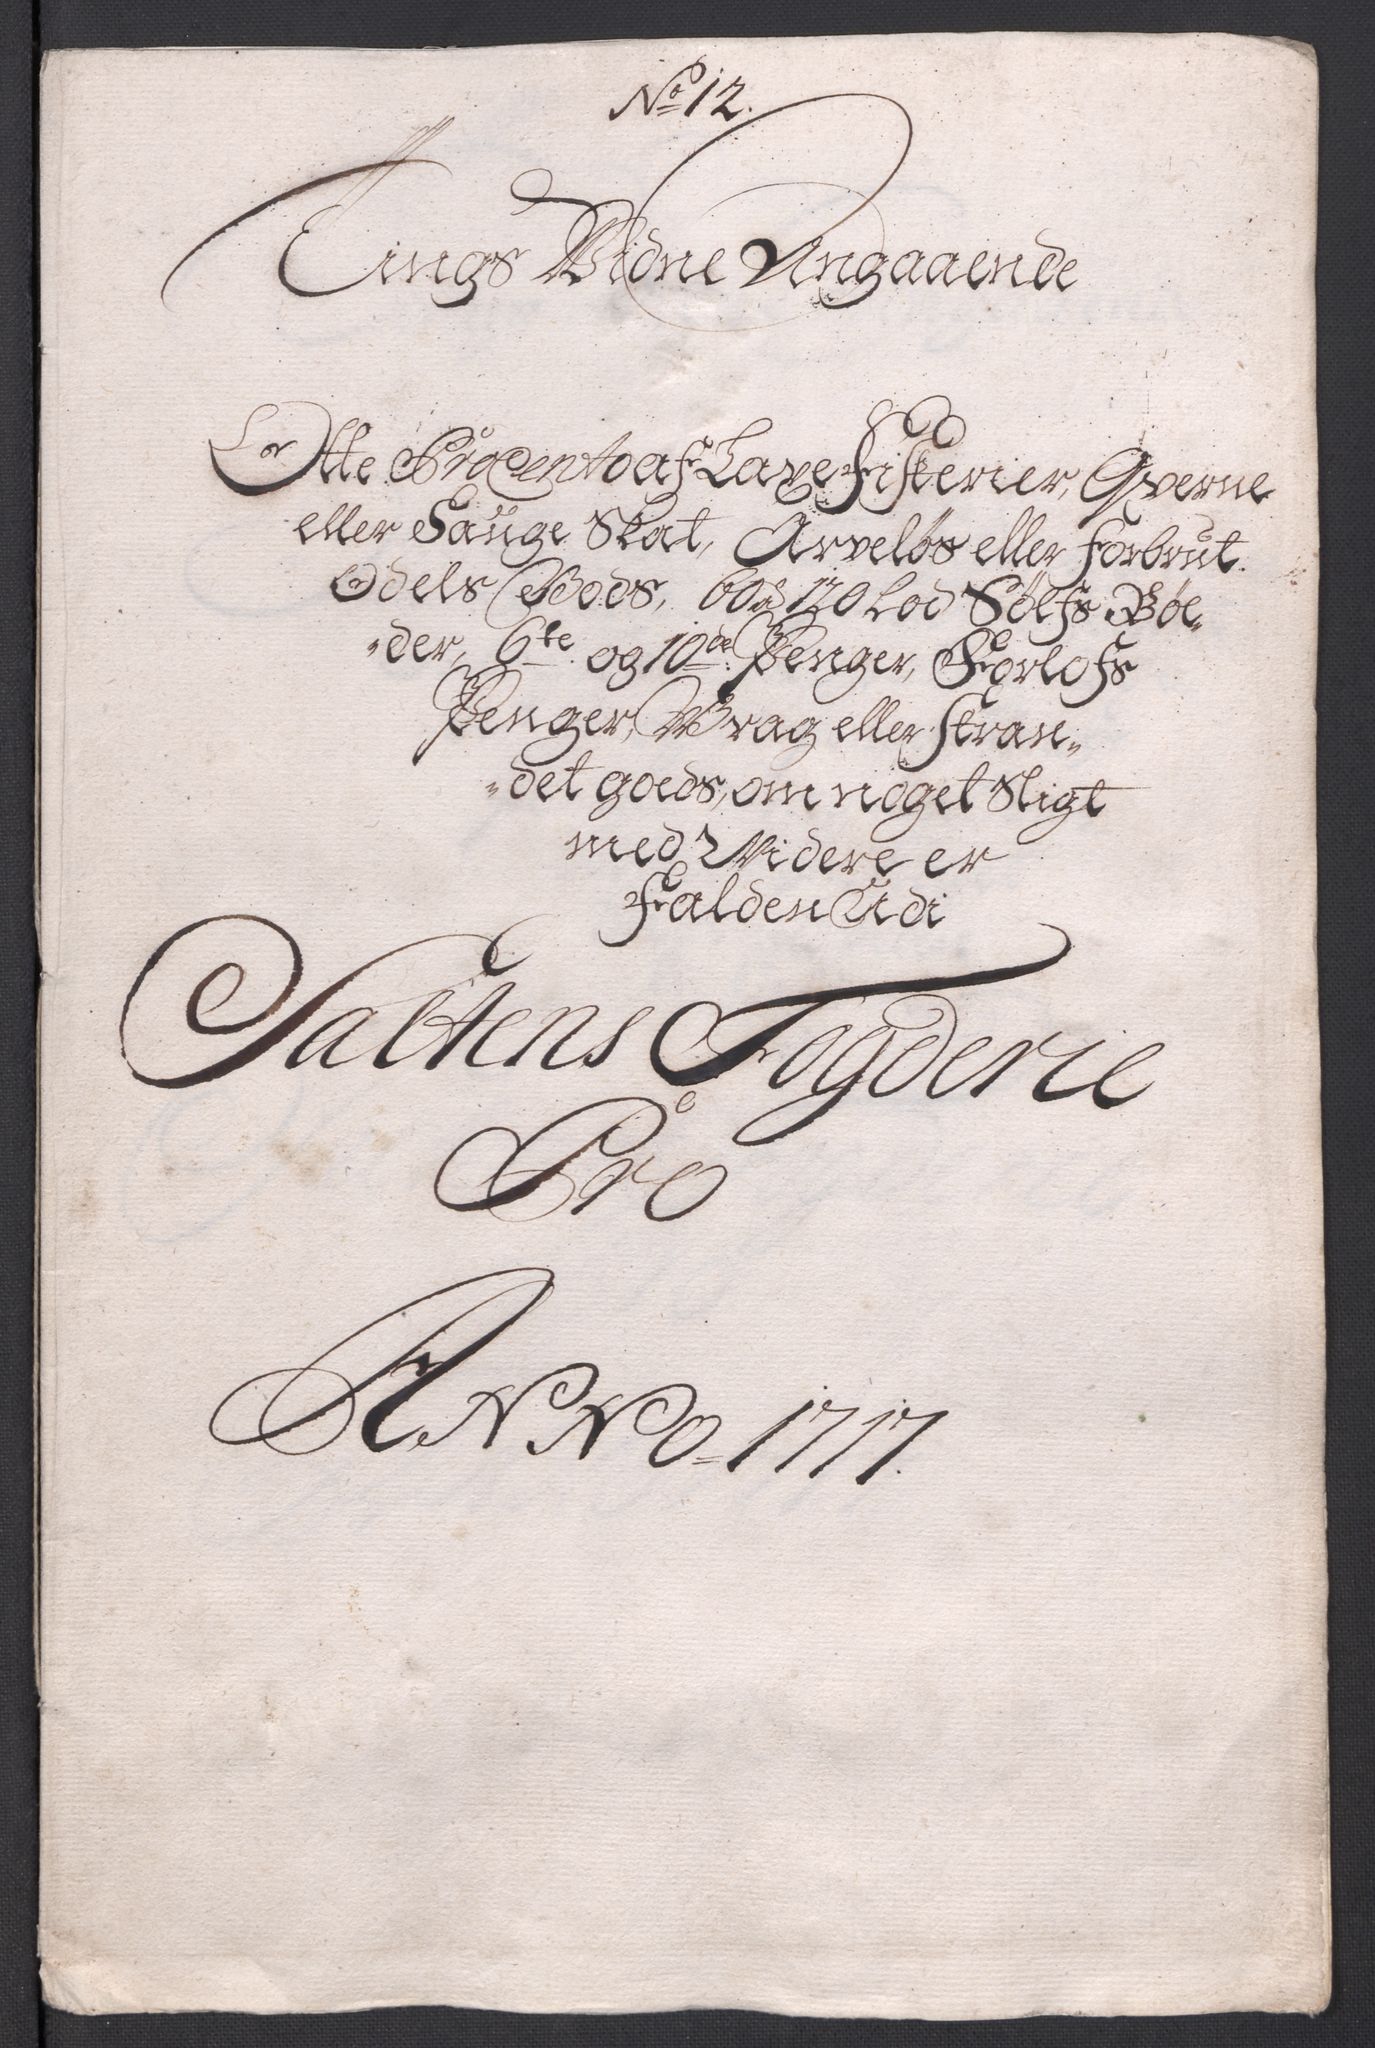 No 12.
Tings Vidne Angaaende
Otte Procento af Laxe Fiskerier, Qverne
eller Sauge Skat, Arveløs eller forbrut
Odels Gods, 60 a 120 Lod Sølfs Bø-
-der, 6te og 10de Penger, Forlofs
Penger, Vrag eller stran-
-det goeds, om noget Sligt
med Videre er
Falden Udi
Saltens Fogderie
Pro
ANNO 1717.